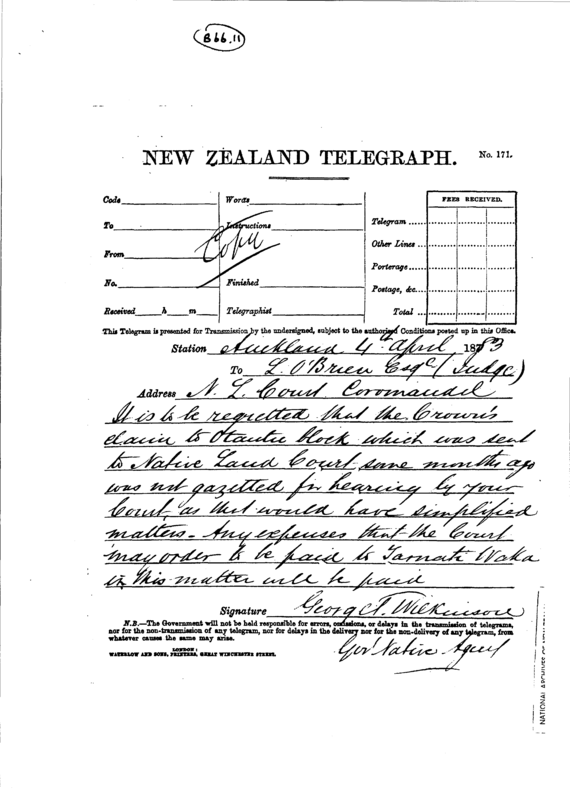 B66.11
NEW ZEALAND TELEGRAPH.
No. 171.
Code
Words
FEES RECEIVED.
To
Instructions
Copy
Telegram
Other Lines
From
Porterage
No.
Finished
Postage, &c.
Received h m
Telegraphist
Total
This Telegram is presented for Transmission by the undersigned, subject to the authorised Conditions posted up in this Office.
Station Auckland 4th April 1883
To L. O'Brien Esqre (Judge)
Address N. L. Court Coromandel
It is to be regretted that the Crown's
claim to Otautu block which was sent
to Native Land Court some months ago
was not gazetted for hearing by your
Court, as that would have simplified
matters - Any expenses that the Court
may order to be paid to Tamati Waka
in this matter will be paid
Signature George T. Wilkinson
N.B.—The Government will not be held responsible for errors, omissions, or delays in the transmission of telegrams,
nor for the non-transmission of any telegram, nor for delays in the delivery nor for the non-delivery of any telegram, from
whatever causes the same may arise.
Gov Native Agent
LONDON:
WATERLOW AND SONS, PRINTERS, GREAT WINCHESTER STREET.
NATIONAL ARCHIVES OF